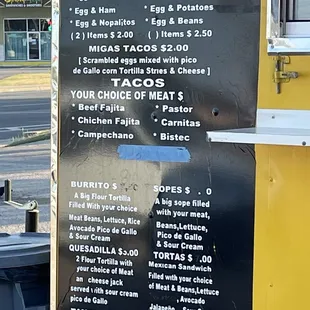 * Egg & Ham
* Egg & Potatoes
* Egg & Nopalitos
* Egg & Beans
( 2 ) Items $ 2.00
( 1 ) Items $ 2.50
MIGAS TACOS $2.00
[ Scrambled eggs mixed with pico
de Gallo corn Tortilla Strres & Cheese ]
TACOS
YOUR CHOICE OF MEAT $
* Beef Fajita
* Chichen Fajita
* Campechano
* Pastor
* Carnitas
* Bistec
BURRITO $
A Big Flour Tortilla
Filled With your choice
Meat Beans, Lettuce, Rice
Avocado Pico de Gallo
& Sour Cream
QUESADILLA $5.00
2 Flour Tortilla with
your choice of Meat
an cheese jack
served with sour cream
pico de Gallo
SOPES $ .0
A big sope filled
with your meat,
Beans, Lettuce,
Pico de Gallo
& Sour Cream
TORTAS $ .00
Mexican Sandwich
Filled with your choice
of Meat & Beans, Lettuce,
Avocado